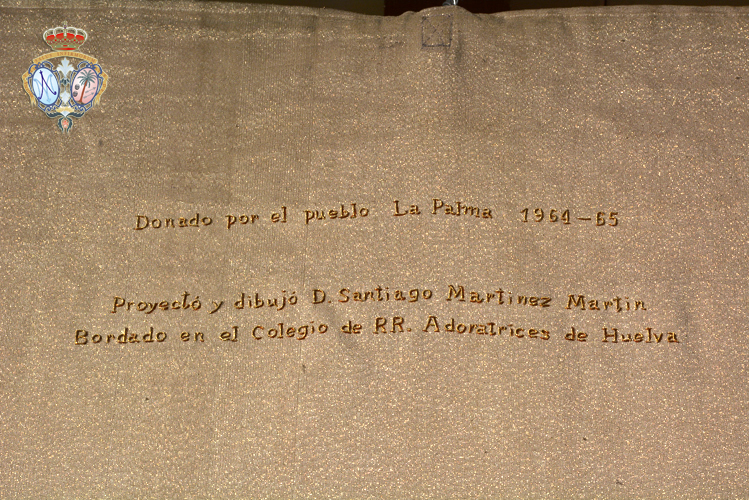 Donado por el pueblo La Palma 1964-65
Proyectó y dibujó D. Santiago Martinez Martin
Bordado en el Colegio de RR. Adoratrices de Huelva